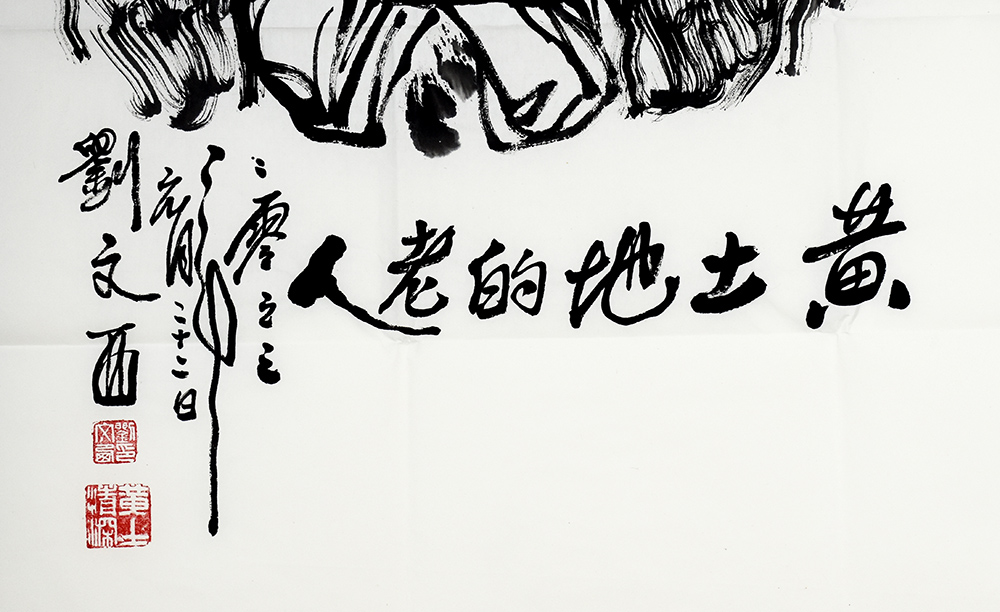 黄土地的老人
二零
年
元月二十二日
劉文西
劉印文西
黄土情深